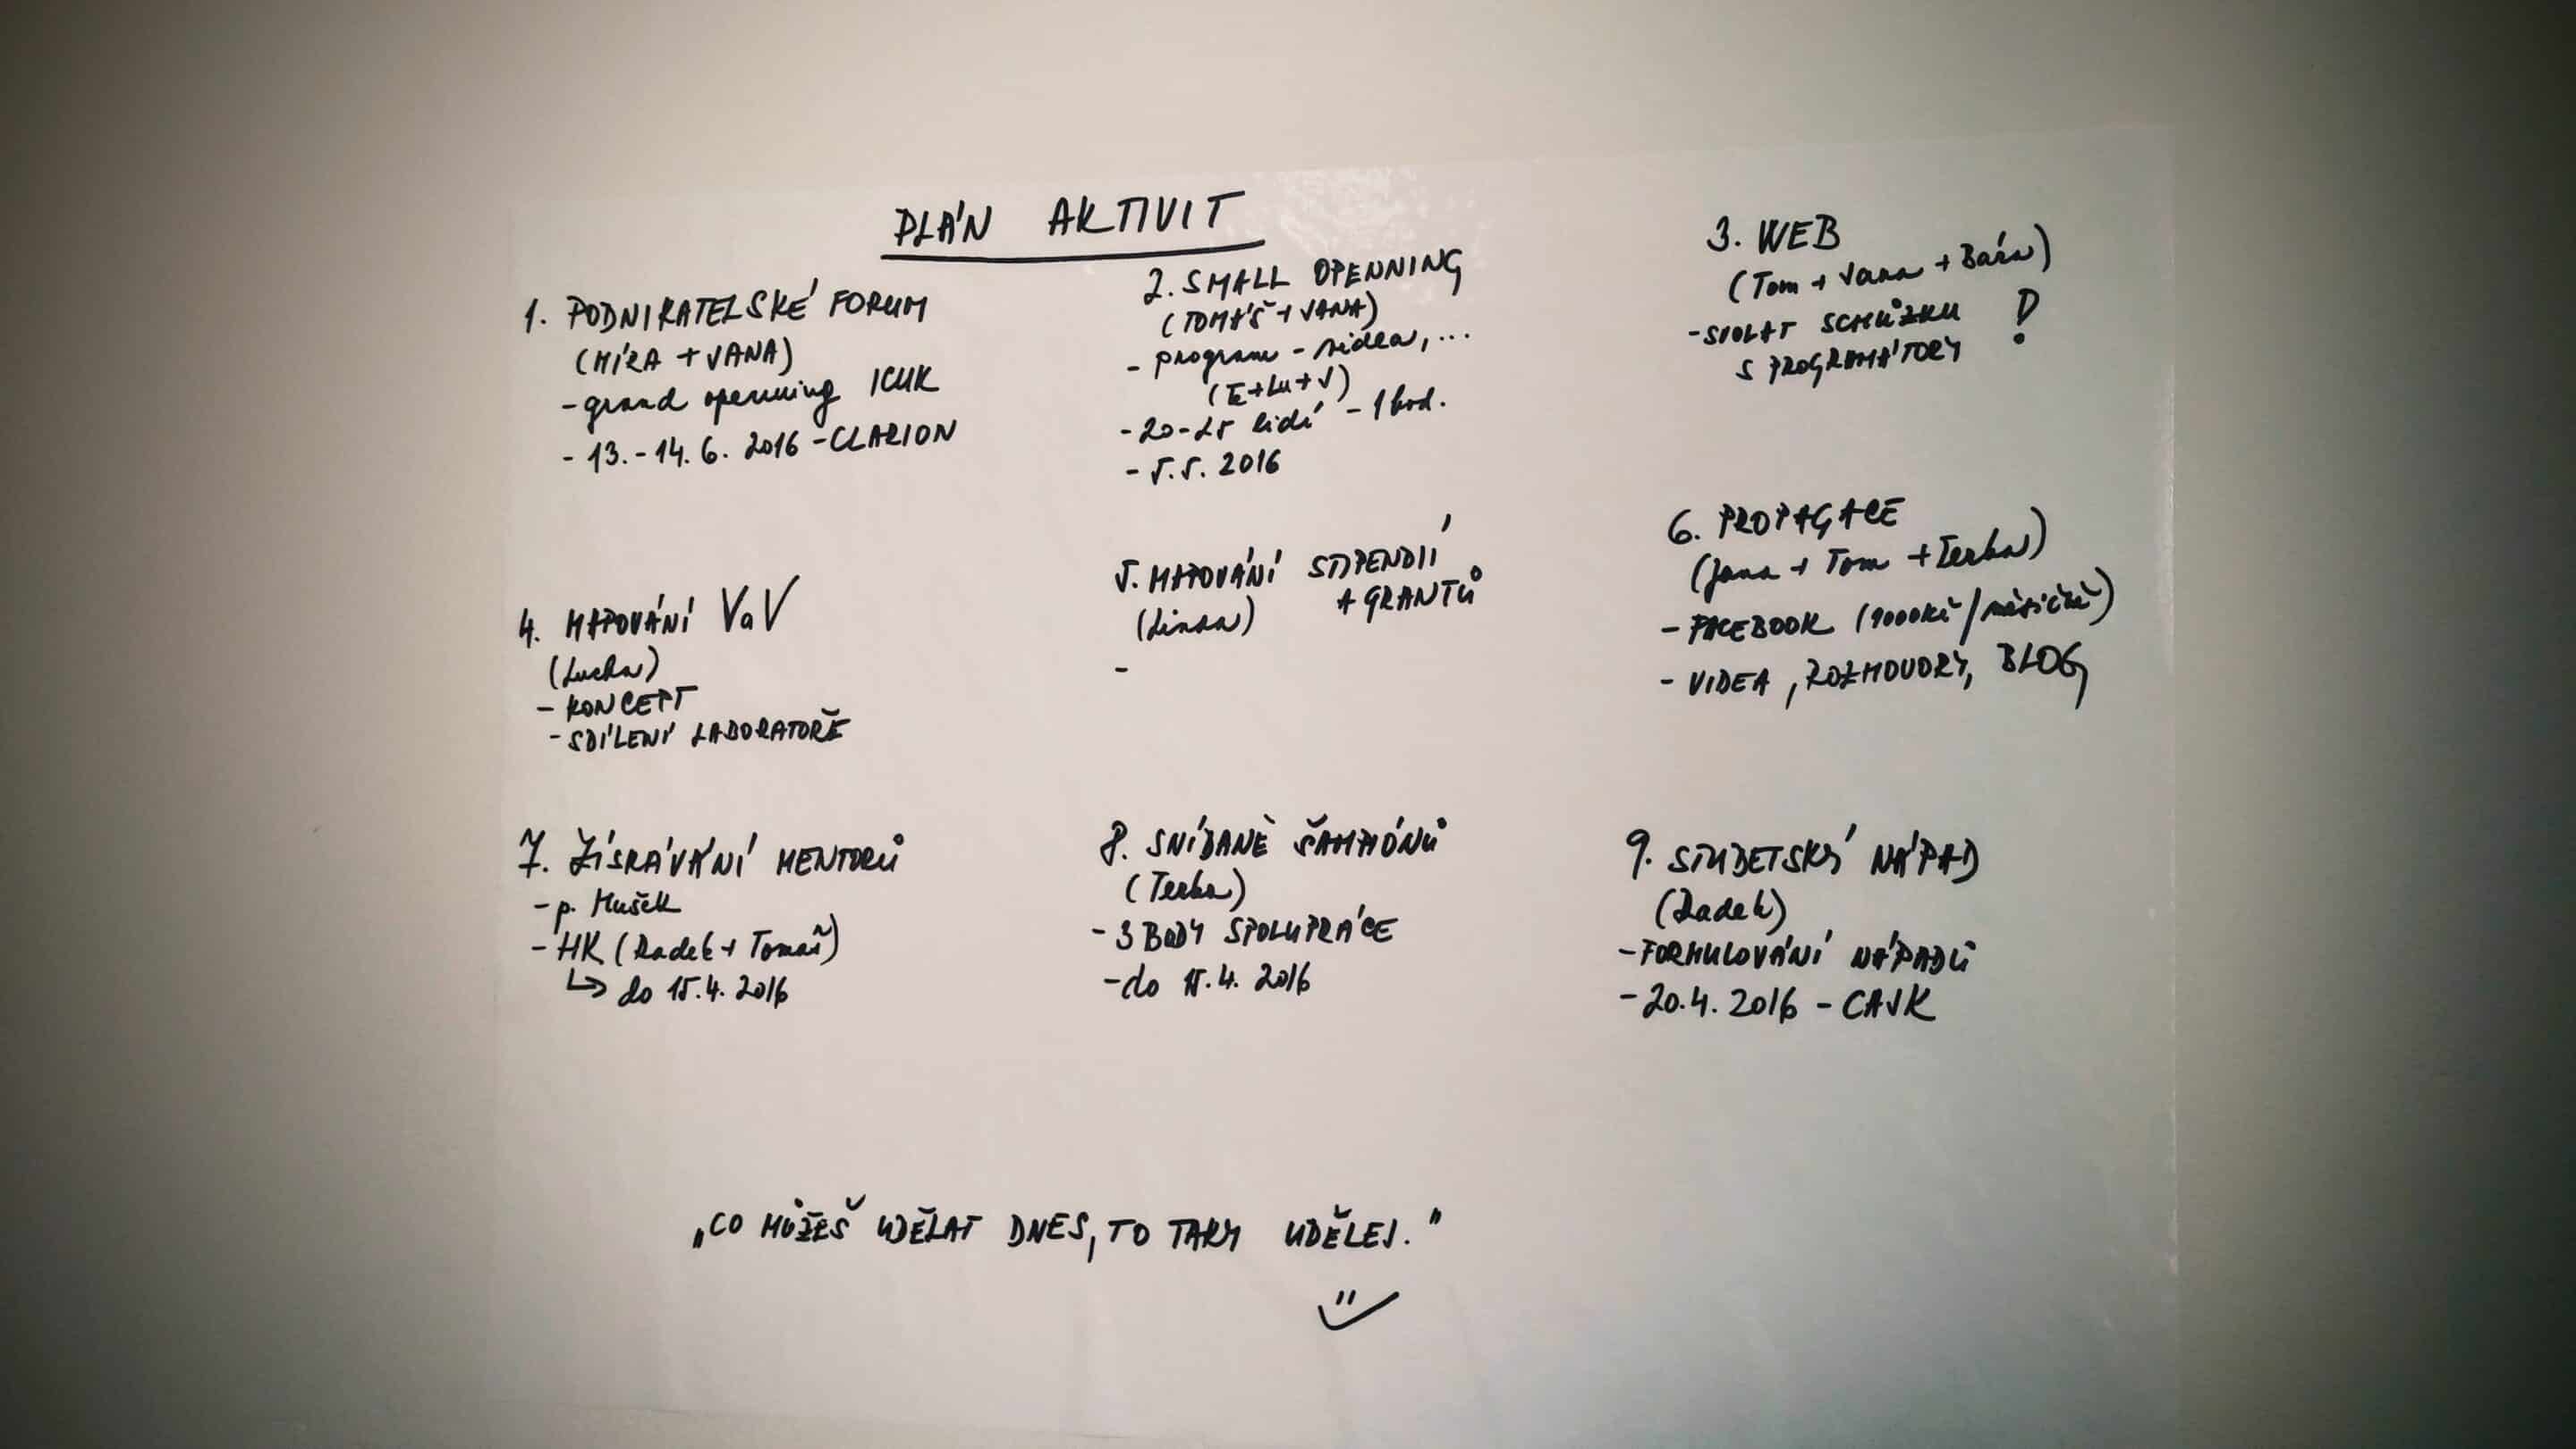 PLÁN AKTIVIT
1. PODNIKATELSKÉ FORUM
(MÍRA + JANA)
- grand openning ICUK
- 13.-14. 6. 2016 - CLARION
2. SMALL OPENNING
(TOMÁŠ + JANA)
- program - videa, ...
(Te+Lu+J)
- 20-25 lidí - 1 hod.
- 5.5. 2016
3. WEB
(Tom + Jana + Bára)
- SVOLAT SCHŮZKU !
S PROGRAMÁTORY
4. MAPOVÁNÍ VaV
(Lucka)
- KONCEPT
- SDÍLENÍ LABORATOŘE
5. MAPOVÁNÍ STIPENDIÍ
A GRANTŮ
(Linda)
-
6. PROPAGACE
(Jana + Tom + Terka)
- FACEBOOK (1000Kč/měsíčně)
- VIDEA, ROZHOVORY, BLOG
7. ZÍSKÁVÁNÍ MENTORŮ
- p. Mušek
- HK (Radek + Tomáš)
↳ do 15.4. 2016
8. SNÍDANĚ ŠAMPIÓNŮ
(Terka)
- 3 BODY SPOLUPRÁCE
- do 15.4. 2016
9. STUDETSKÝ NÁPAD
(Radek)
- FORMULOVÁNÍ NÁPADŮ
- 20.4. 2016 - CAJK
„CO MŮŽEŠ UDĚLAT DNES, TO TAKY UDĚLEJ."